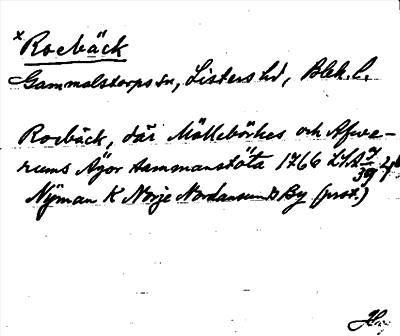 x Roebäck
Gammalstorps sn, Listers hd, Blek. l.
Roebäck, där Mälleböckes och Afwe-
rums Ägor sammanstöta 1766 LSA
Nyman K Norje Nordansund By (prot.)